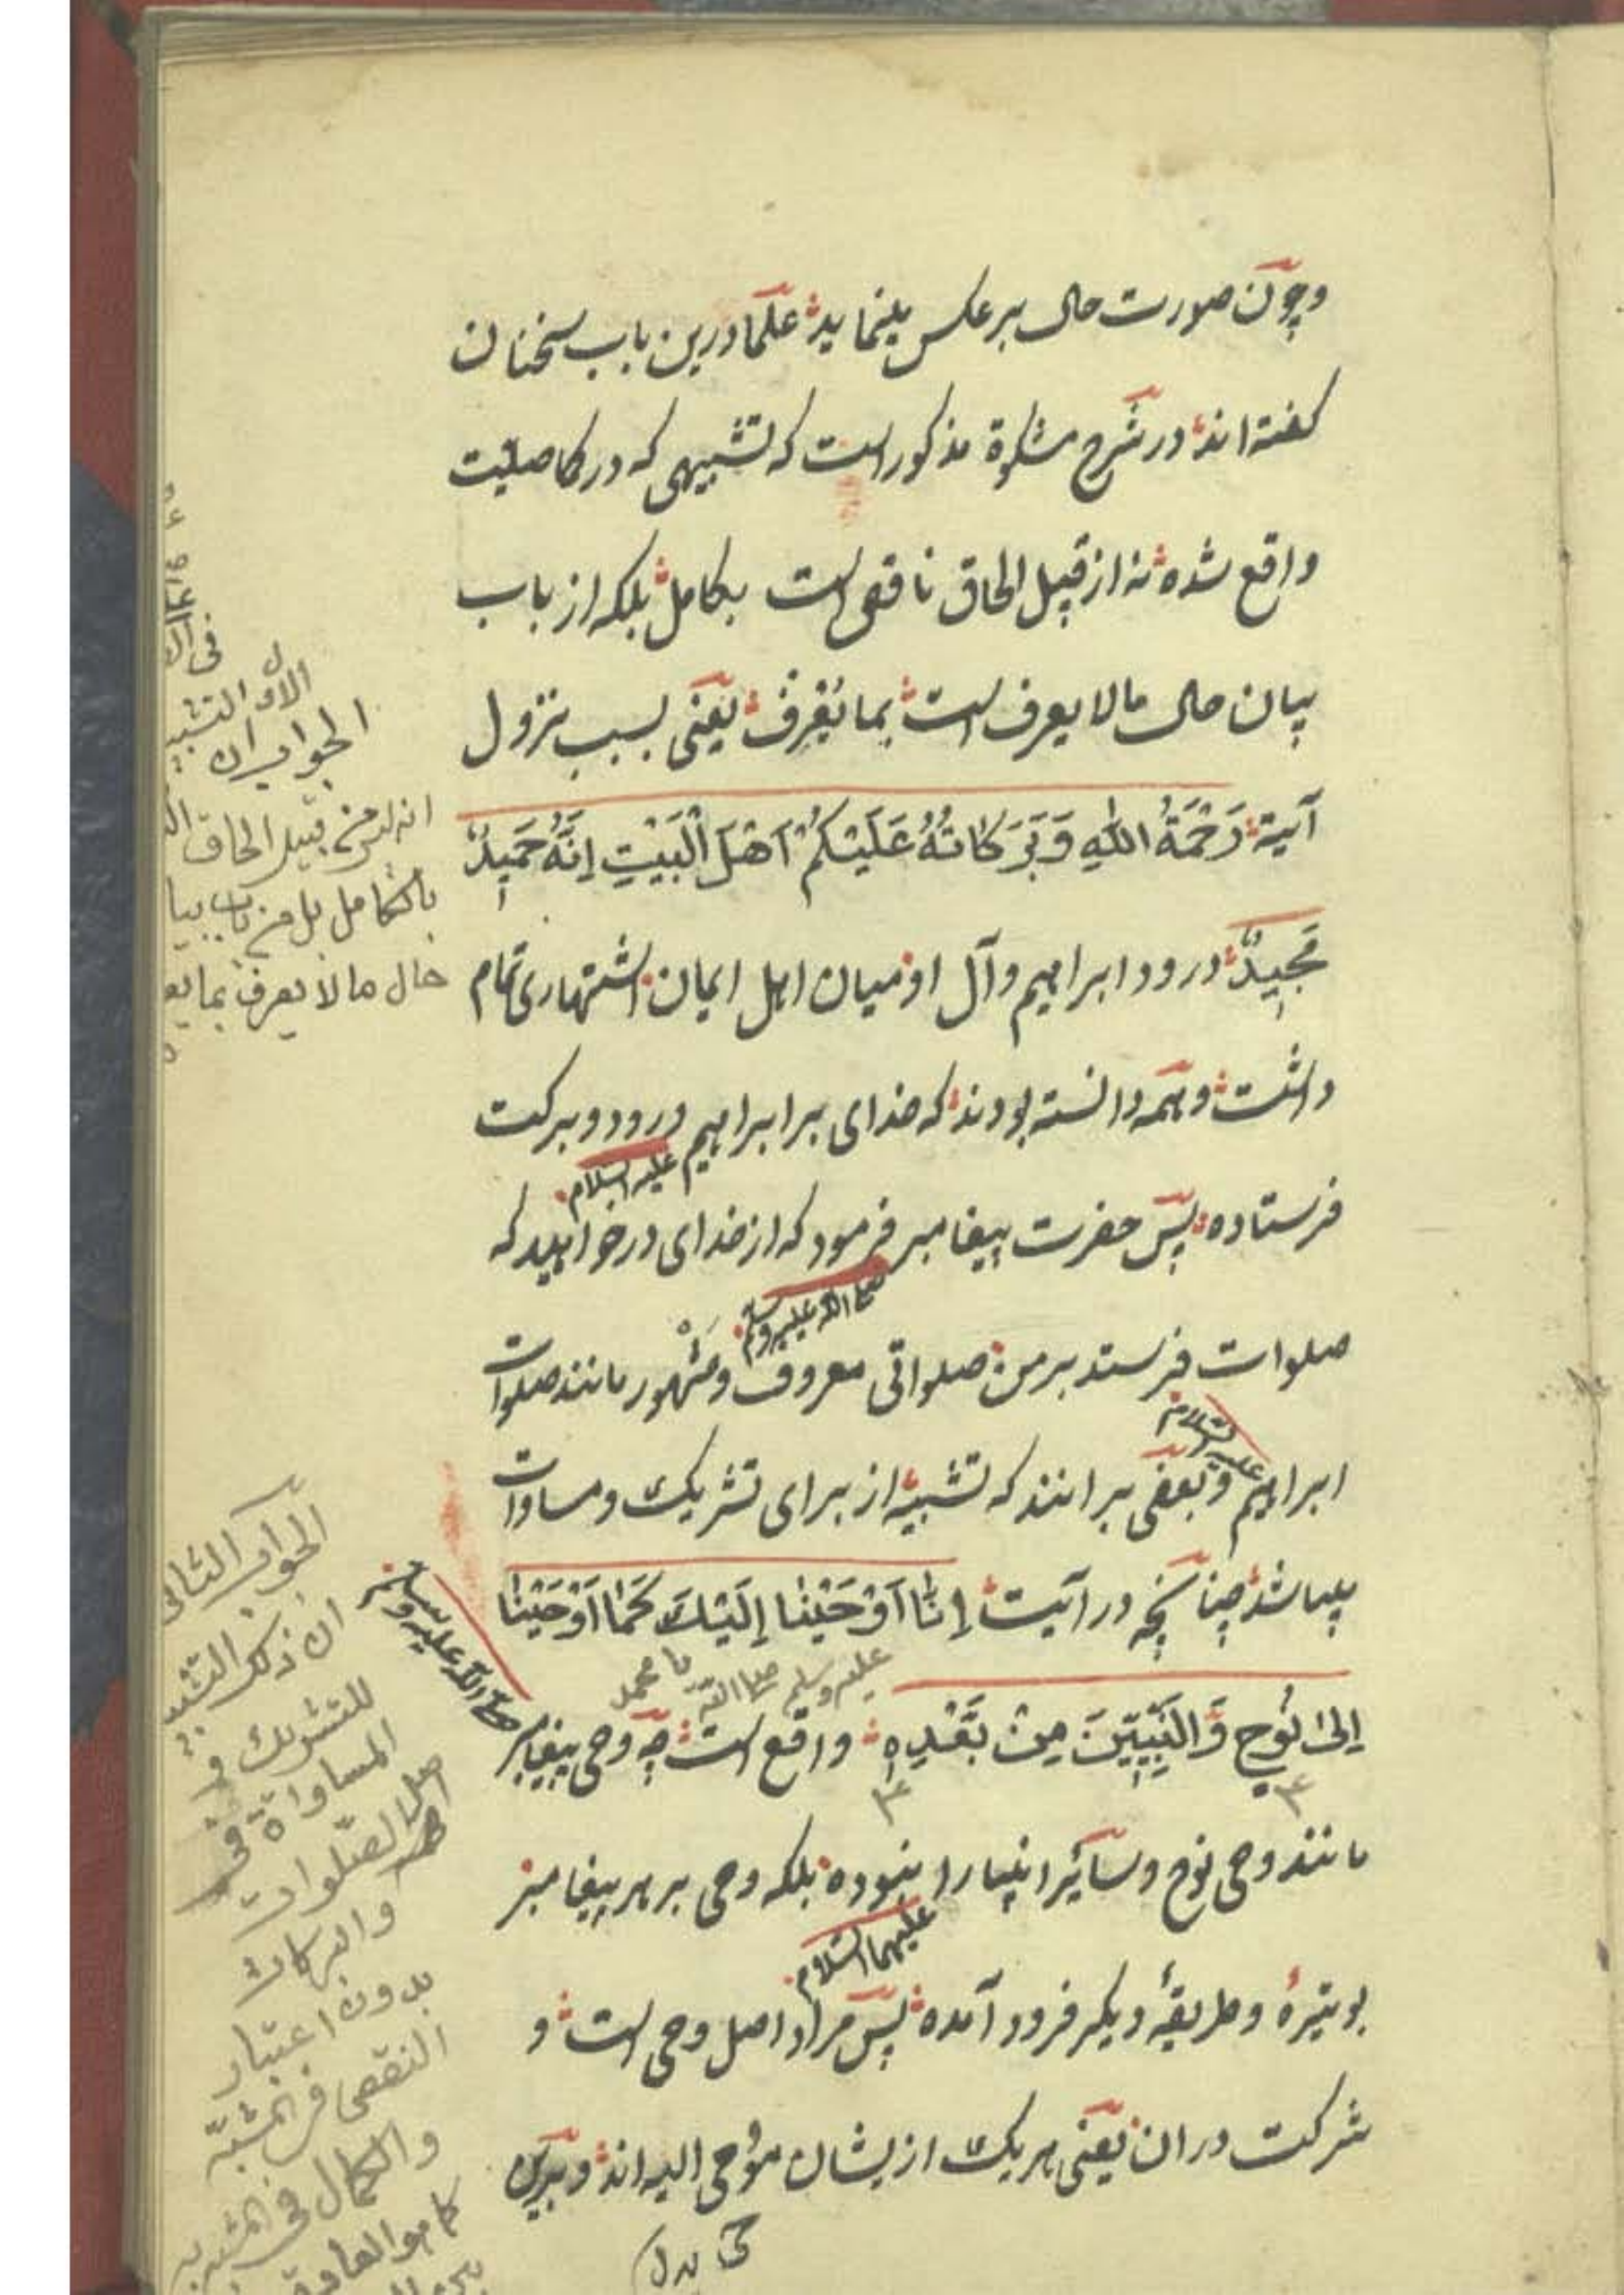 وچون صورت حال برعکس مینماید علما درین باب سخنان
کفته‌اند در شرح مشکوة مذکور است که تشبیهی که در کما صلیت
واقع شده نه از قبیل الحاق ناقص است بکامل بلکه از باب
بیان حال مالا یعرف است بما یُعْرِفُ یعنی بسبب نزول
آیة رَحْمَةُ اللهِ وَبَرَكَاتُهُ عَلَيْكُمْ اَهْلَ الْبَيْتِ اِنَّهُ حَمِيدٌ
مَجِيدٌ درود ابراهیم وآل او میان اهل ایمان اشتهاری تمام
داشت وهمه دانسته بودند که خدای بر ابراهیم درود وبرکت
علیه السلام
فرستاده پس حضرت پیغامبر فرمود که از خدای درخواهید که
صلی الله علیه وسلم
صلوات فرستد بر من صلواتی معروف ومشهور مانند صلوات
علیه السلام
ابراهیم وبعضی برانند که تشبیه از برای تشریک ومساوات
میباشد چنانچه در آیت اِنَّا اَوْحَيْنَا اِلَيْكَ كَمَا اَوْحَيْنَا
یا محمد صلی الله علیه وسلم
اِلىٰ نُوحٍ وَالنَّبِيّينَ مِنْ بَعْدِهِ واقع است چه وحی پیغامبر
صلی الله علیه وسلم
مانند وحی نوح وسائر انبیا را نبوده بلکه وحی بر هر پیغامبر
علیهما السلام
بوتیرهٔ وطریقهٔ دیکر فرود آمده پس مراد اصل وحی است و
شرکت در ان یعنی هریک از یشان مُوْحی الیه اند وبدین
الجواب الاول
ان التشبیه
انه لیس من قبیل الحاق
بالکامل بل من باب بیا
حال ما لا یعرف بما یعر
الجواب الثانی
ان ذکر التشبیه
للتشریک و
المساواة فی
اصل الصلوات
والبرکات
بدون اعتبار
النقص فی المشبّه
والکمال فی المشبه به
کما هو العادة